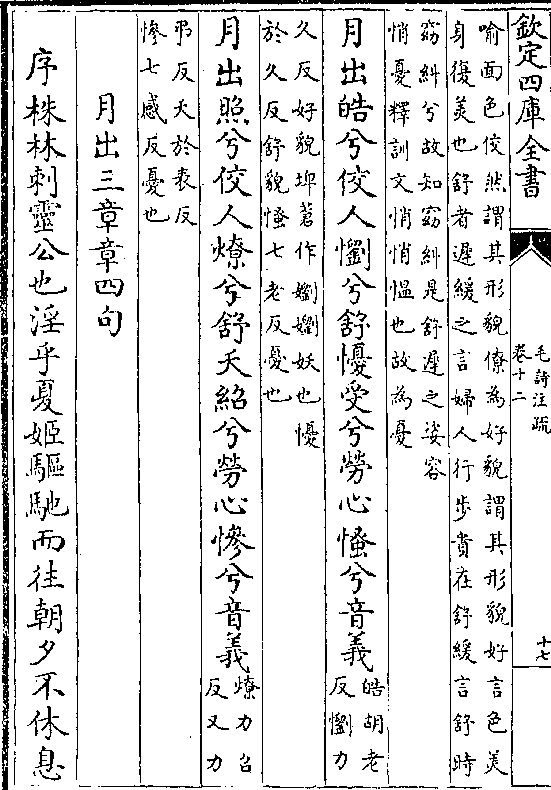 欽定四庫全書
毛詩注疏
卷十二
十七
喻面色佼然謂其形貌僚為好貌謂其形貌好言色美
身復美也舒者遲緩之言婦人行步貴在舒緩言舒時
窈糾兮故知窈糾是舒遲之姿容
悄憂釋訓文悄悄愠也故為憂
月出皓兮佼人懰兮舒懮受兮勞心慅兮音義
皓胡老
反懰力
久反好貌埤蒼作嬼嬼妖也懮
於久反舒貌慅七老反憂也
月出照兮佼人燎兮舒夭紹兮勞心慘兮音義
燎力召
反又力
弔反夭於表反
慘七感反憂也
月出三章章四句
序株林刺靈公也淫乎夏姬驅馳而往朝夕不休息